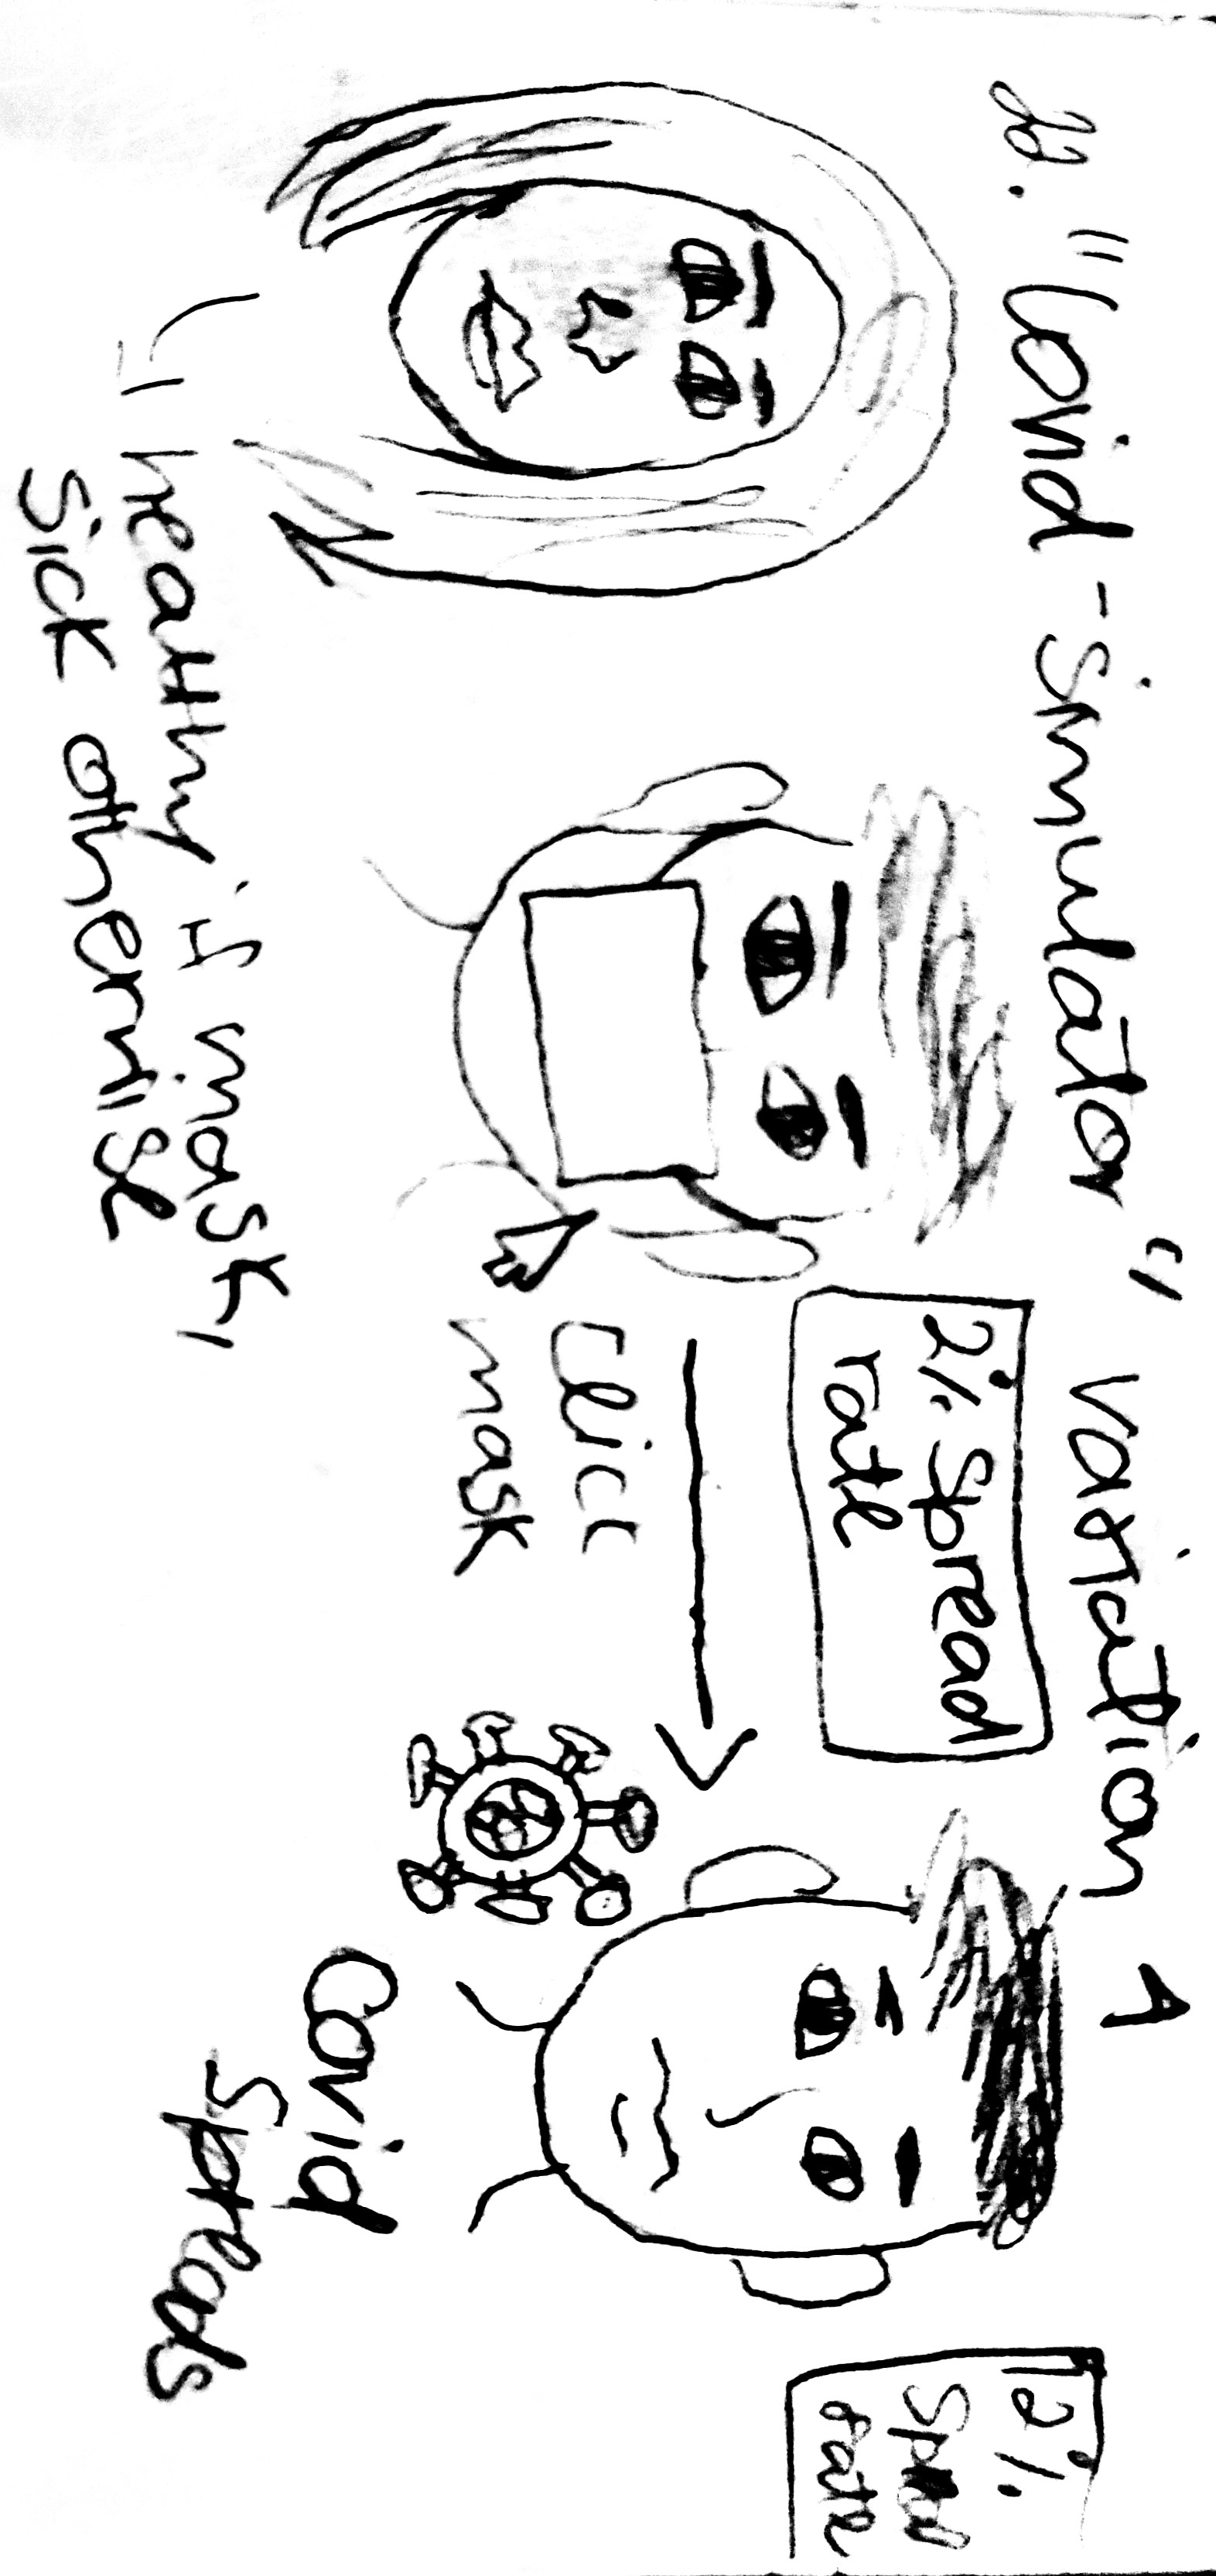 22. "Covid-simulator" variation 1
2% Spread
rate
12%
Spread
rate
click
mask
Covid
Spreads
healthy if mask,
sick otherwise